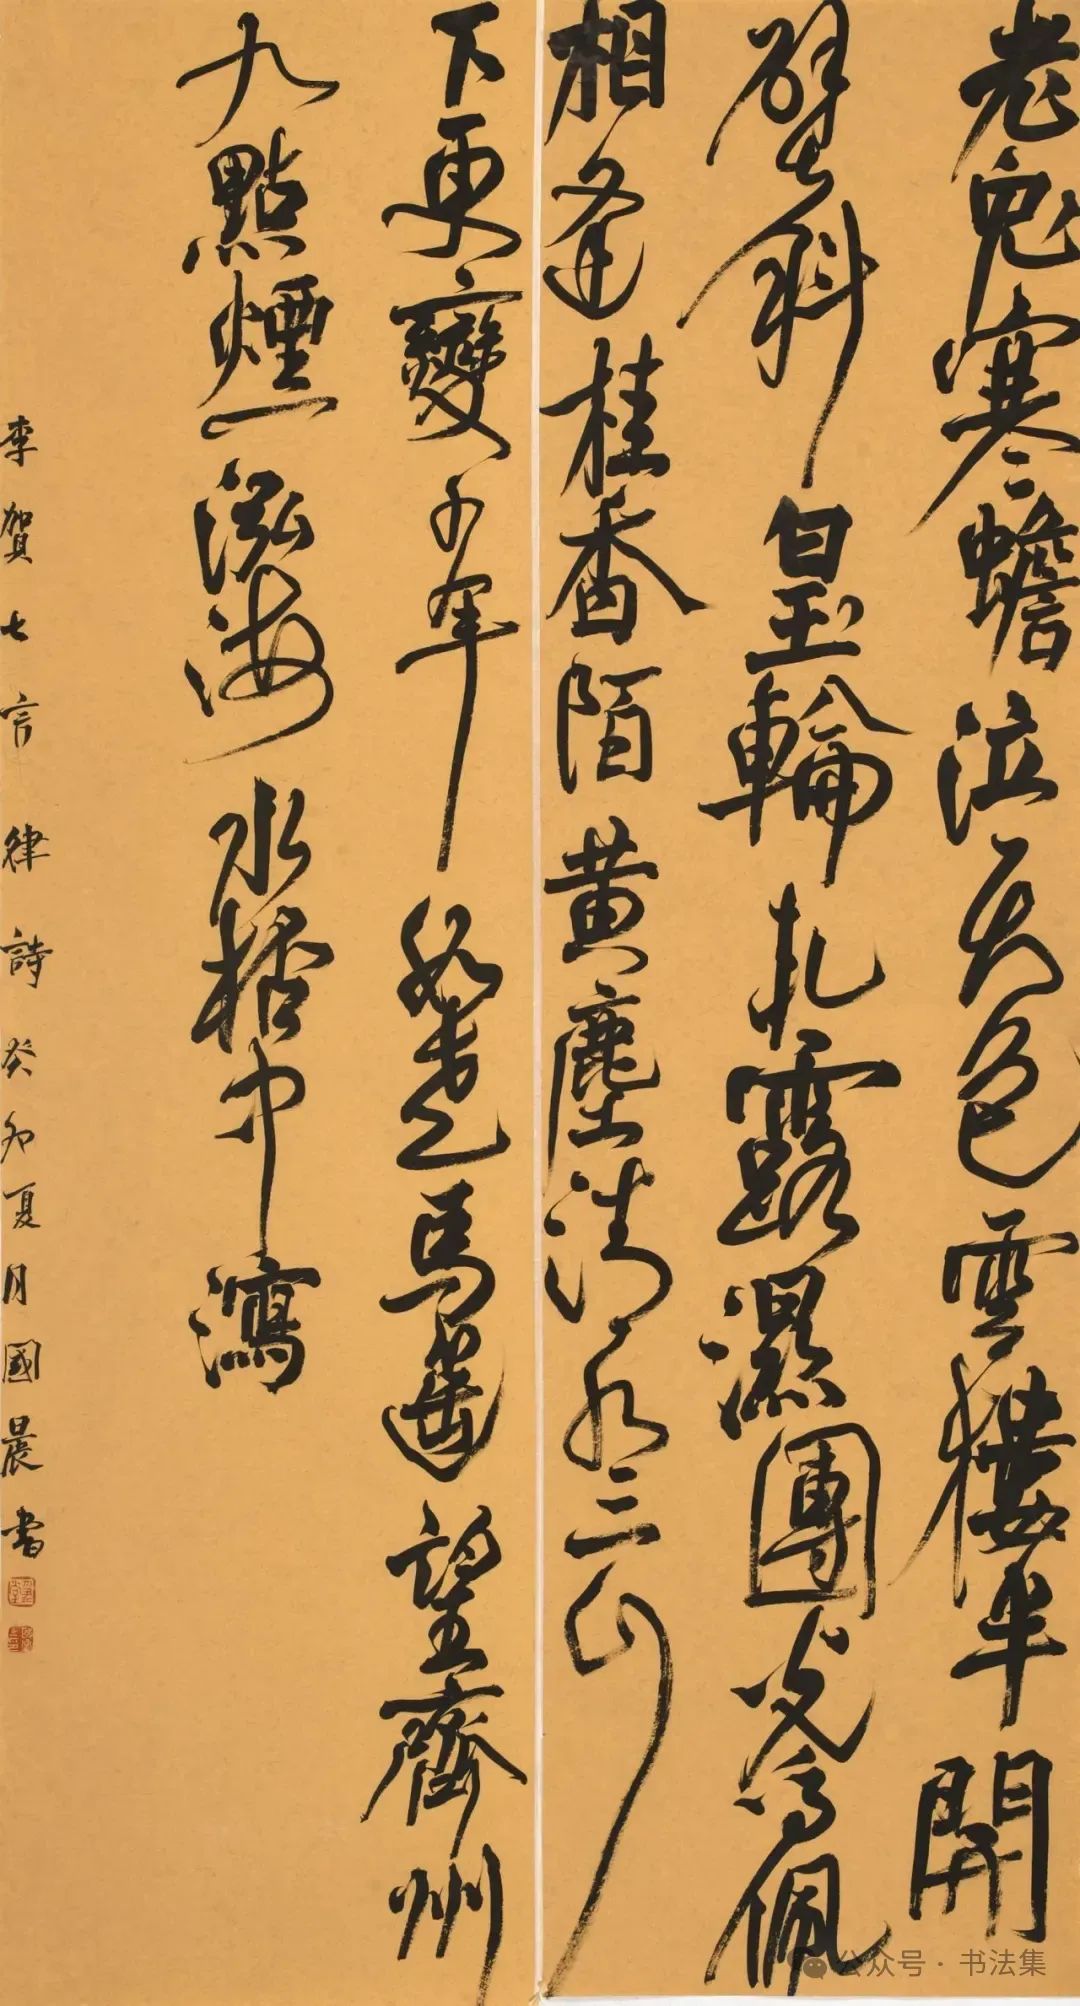 老兔寒蟾泣天色雲樓半開
壁斜白玉輪軋露濕團光鸞佩
相逢桂香陌黄塵清水三山
下更變千年如走馬遥望齊州
九點煙一泓海水桮中瀉
李賀七言律詩癸卯夏月國晨書
公众号 · 书法集